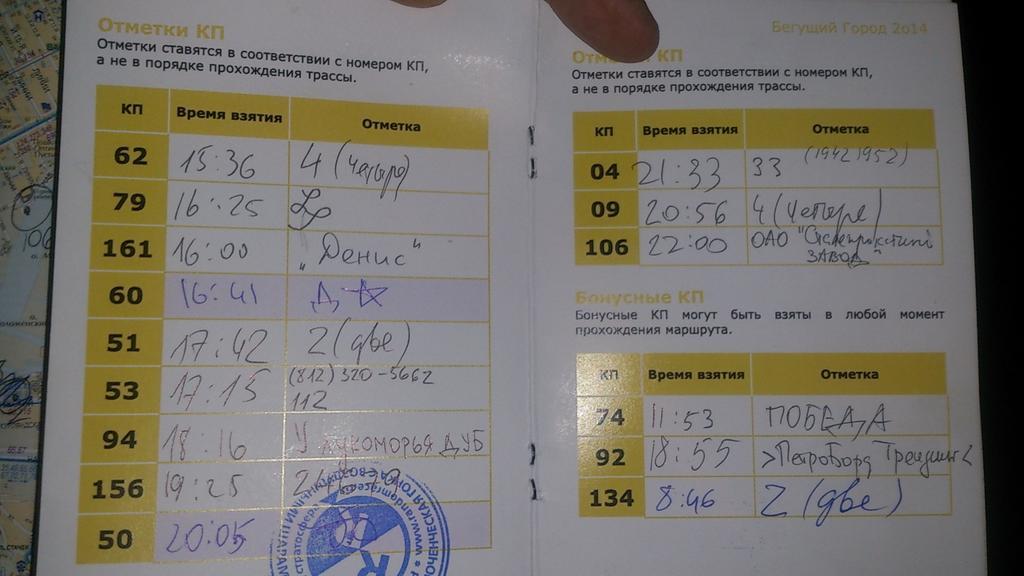 Отметки КП
Отметки ставятся в соответствии с номером КП,
а не в порядке прохождения трассы.
КП Время взятия Отметка
62 15:36 4 (четыре)
79 16:25
161 16:00 "Денис"
60 16:41 Д
51 17:42 2 (две)
53 17:15 (812) 320-5662
112
94 18:16 У лукоморья ДУБ
156 19:25
50 20:05
Бегущий Город 2о14
Отметки КП
Отметки ставятся в соответствии с номером КП,
а не в порядке прохождения трассы.
КП Время взятия Отметка
04 21:33 33 (1942 1952)
09 20:56 4 (четыре)
106 22:00 ОАО
ЗАВОД"
Бонусные КП
Бонусные КП могут быть взяты в любой момент
прохождения маршрута.
КП Время взятия Отметка
74 11:53 ПОБЕДА
92 18:55 >ПетроБорд Трейдинг<
134 8:46 2 (две)